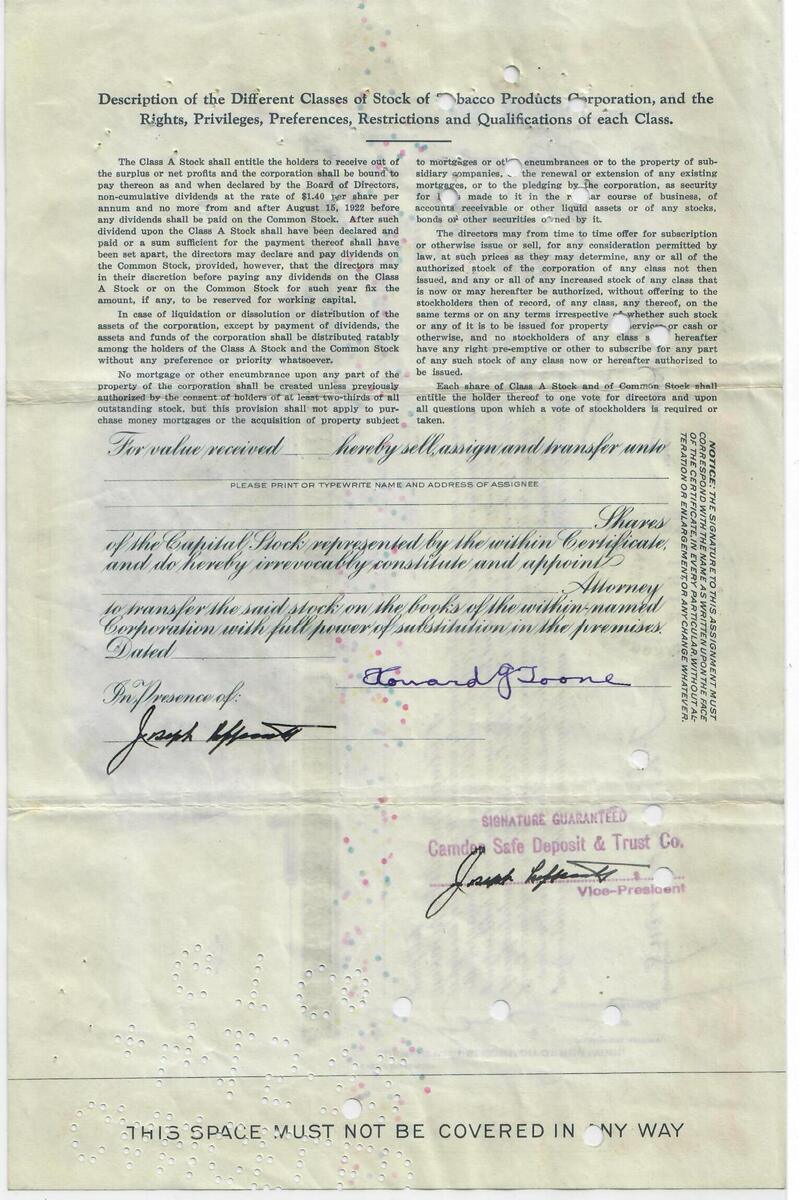 Description of the Different Classes of Stock of Tobacco Products Corporation, and the
Rights, Privileges, Preferences, Restrictions and Qualifications of each Class.
The Class A Stock shall entitle the holders to receive out of
the surplus or net profits and the corporation shall be bound to
pay thereon as and when declared by the Board of Directors,
non-cumulative dividends at the rate of $1.40 per share per
annum and no more from and after August 15, 1922 before
any dividends shall be paid on the Common Stock. After such
dividend upon the Class A Stock shall have been declared and
paid or a sum sufficient for the payment thereof shall have
been set apart, the directors may declare and pay dividends on
the Common Stock, provided, however, that the directors may
in their discretion before paying any dividends on the Class
A Stock or on the Common Stock for such year fix the
amount, if any, to be reserved for working capital.
In case of liquidation or dissolution or distribution of the
assets of the corporation, except by payment of dividends, the
assets and funds of the corporation shall be distributed ratably
among the holders of the Class A Stock and the Common Stock
without any preference or priority whatsoever.
No mortgage or other encumbrance upon any part of the
property of the corporation shall be created unless previously
authorized by the consent of holders of at least two-thirds of all
outstanding stock, but this provision shall not apply to pur-
chase money mortgages or the acquisition of property subject
to mortgages or other encumbrances or to the property of sub-
sidiary companies, the renewal or extension of any existing
mortgages, or to the pledging by the corporation, as security
for made to it in the regular course of business, of
accounts receivable or other liquid assets or of any stocks,
bonds or other securities owned by it.
The directors may from time to time offer for subscription
or otherwise issue or sell, for any consideration permitted by
law, at such prices as they may determine, any or all of the
authorized stock of the corporation of any class not then
issued, and any or all of any increased stock of any class that
is now or may hereafter be authorized, without offering to the
stockholders then of record, of any class, any thereof, on the
same terms or on any terms irrespective of whether such stock
or any of it is to be issued for property services or cash or
otherwise, and no stockholders of any class hereafter
have any right pre-emptive or other to subscribe for any part
of any such stock of any class now or hereafter authorized to
be issued.
Each share of Class A Stock and of Common Stock shall
entitle the holder thereof to one vote for directors and upon
all questions upon which a vote of stockholders is required or
taken.
For value received hereby sell, assign and transfer unto
PLEASE PRINT OR TYPEWRITE NAME AND ADDRESS OF ASSIGNEE
Shares
of the Capital Stock represented by the within Certificate,
and do hereby irrevocably constitute and appoint
Attorney
to transfer the said stock on the books of the within-named
Corporation with full power of substitution in the premises.
Dated
Howard J Toone
In Presence of:
Joseph
NOTICE: THE SIGNATURE TO THIS ASSIGNMENT MUST
CORRESPOND WITH THE NAME AS WRITTEN UPON THE FACE
OF THE CERTIFICATE, IN EVERY PARTICULAR, WITHOUT AL-
TERATION OR ENLARGEMENT, OR ANY CHANGE WHATEVER.
SIGNATURE GUARANTEED
Camden Safe Deposit & Trust Co.
Joseph
Vice-President
THIS SPACE MUST NOT BE COVERED IN ANY WAY